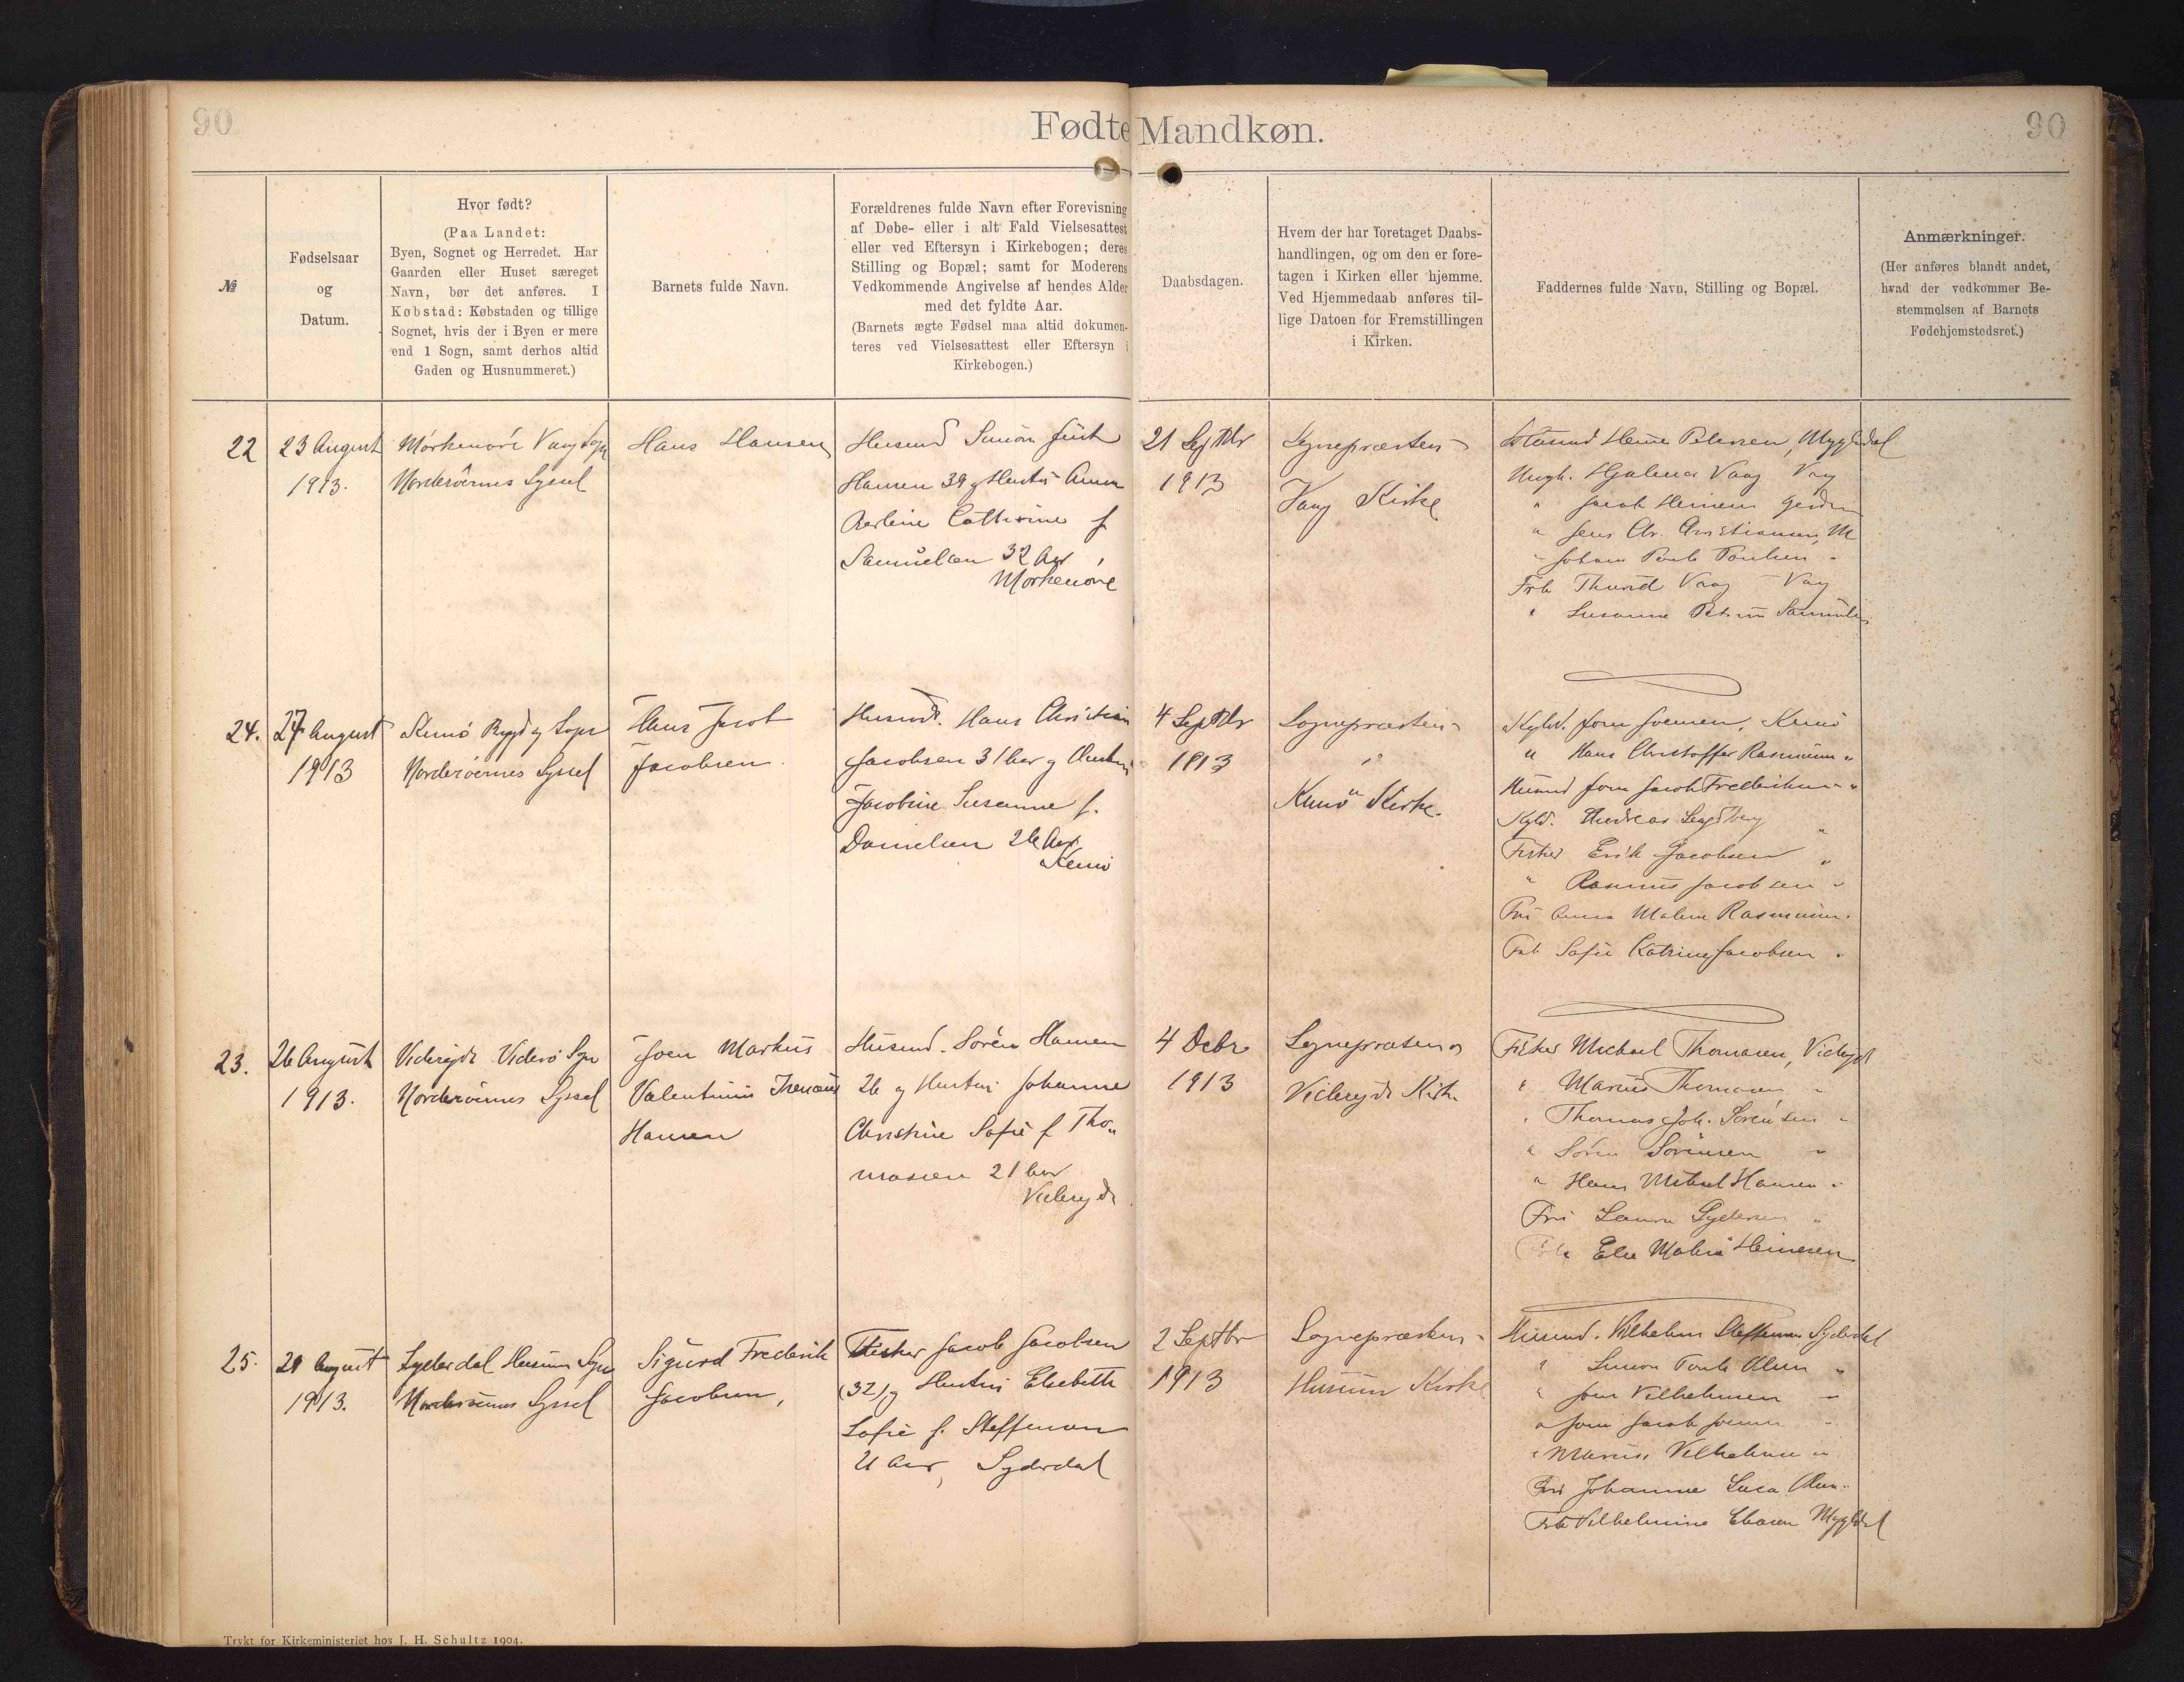 90
Fødte Mandkøn.
90
№
Fødselsaar
og
Datum.
Hvor født?
(Paa Landet:
Byen, Sognet og Herredet. Har
Gaarden eller Huset særeget
Navn, bør det anføres. I
Købstad: Købstaden og tillige
Sognet, hvis der i Byen er mere
end 1 Sogn, samt derhos altid
Gaden og Husnummeret.)
Barnets fulde Navn.
Forældrenes fulde Navn efter Forevisning
af Døbe- eller i alt Fald Vielsesattest
eller ved Eftersyn i Kirkebogen; deres
Stilling og Bopæl; samt for Moderens
Vedkommende Angivelse af hendes Alder
med det fyldte Aar.
(Barnets ægte Fødsel maa altid dokumen-
teres ved Vielsesattest eller Eftersyn i
Kirkebogen.)
Daabsdagen.
Hvem der har foretaget Daabs-
handlingen, og om den er fore-
tagen i Kirken eller hjemme.
Ved Hjemmedaab anføres til-
lige Datoen for Fremstillingen
i Kirken.
Faddernes fulde Navn, Stilling og Bopæl.
Anmærkninger.
(Her anføres blandt andet,
hvad der vedkommer Be-
stemmelsen af Barnets
Fødehjemstedsret.)
22
23 August
1913.
Morkenøre Vaag Sogn
Norderøernes Syssel
Hans Hansen
Husmd Simon
Hansen 39 og Hustru Anna
Cathrine f
Samuelsen 32 Aar,
Morkenøre
21 Septbr
1913
Sognepræsten
Vaag Kirke
Heine Mygledal
Ungk. Hjalmar Vaag Vaag
" Jacob Heinesen
" Jens Chr. Christiansen, M
" Johan Poulsen "
Frk Thurid Vaag Vaag
" Susanne
24.
27 August
1913
Kunø Bygd og Sogn
Norderøernes Syssel
Hans Jacob
Jacobsen.
Husmd. Hans Christian
Jacobsen 31 Aar og Hustru
Jacobine Susanne f.
Danielsen 26 Aar,
Kunø
4 Septbr
1913
Sognepræsten
"
Kunø Kirke.
Joen Joensen, Kunø
" Hans Christoffer Rasmussen "
Husmd Joen Jacob Frederiksen "
Andreas "
Fisker Erik Jacobsen "
" Rasmus Jacobsen "
Fru Anna Malene Rasmussen "
Frk Sofie Katrine Jacobsen "
23.
26 August
1913.
Videreide Viderø Sogn
Norderøernes Syssel
Joen Markus
Valentinus Irenæus
Hansen
Husmd. Søren Hansen
26 og Hustru Johanne
Christine Sofie f Tho„
masen 21 Aar
Videreide
4 Octbr
1913
Sognepræsten
Videreide Kirke
Fisker Michael Thomasen, Videreide
" Marius Thomasen "
" Thomas Joh. Sørensen "
" Søren Sørensen "
" Hans Mikael Hansen "
Fru Laura
Frk Else Malene Heinesen
25.
1913.
Syderdal Husum Sogn
Norderøernes Syssel
Sigurd Frederik
Jacobsen,
Fisker Jacob Jacobsen
(32) og Hustru Elsebeth
Sofie f. Steffensen
21 Aar, Syderdal
2 Septbr
1913
Sognepræsten
Husum Kirke
Husmd. Vilhelm Steffensen Syderdal
" Simon Poul Olsen "
" Joen Vilhelmsen "
" Joen Jacob Joensen "
" Marius Vilhelmsen "
Fru Johanne Olsen "
Frk Vilhelmine Mygledal
Trykt for Kirkeministeriet hos J. H. Schultz 1904.